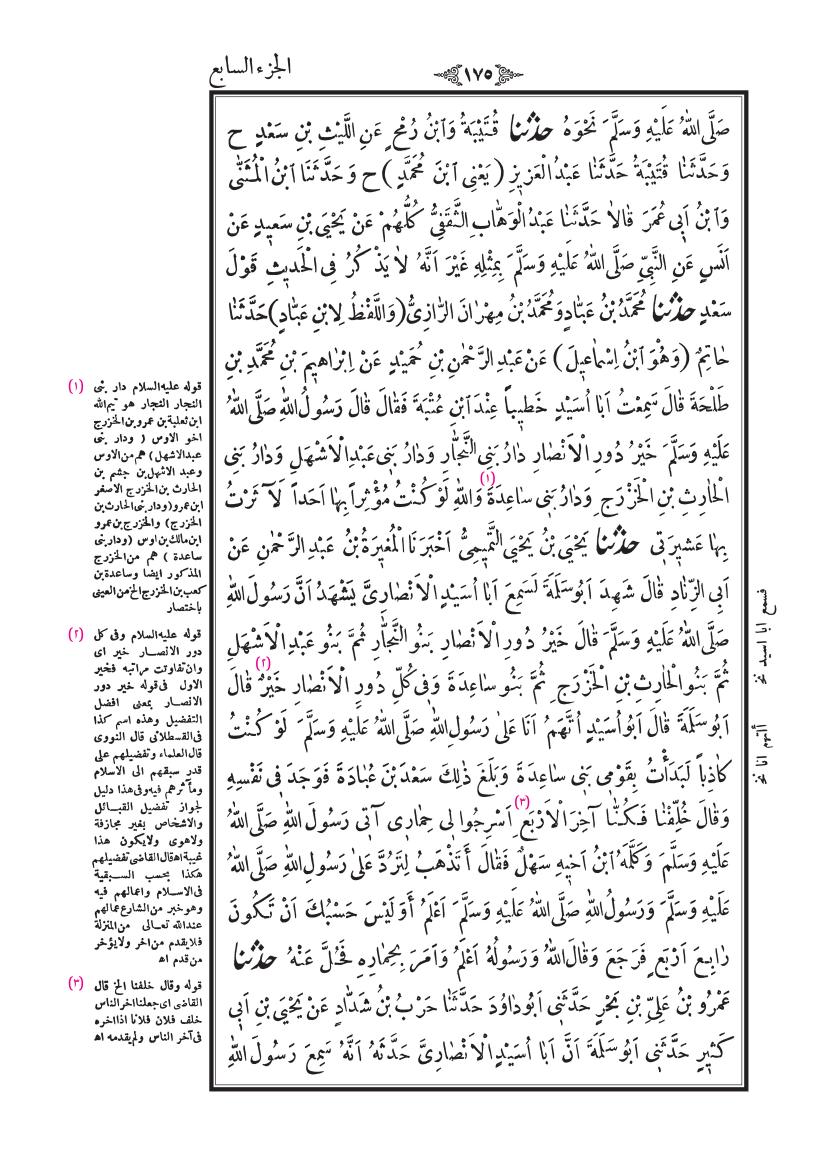 الجزء السابع
١٧٥
صَلَّى اللهُ عَلَيْهِ وَسَلَّمَ نَحْوَهُ حدثنا قُتَيْبَةُ وَابْنُ رُمْحٍ عَنِ اللَّيْثِ بْنِ سَعْدٍ ح
وَحَدَّثَنَا قُتَيْبَةُ حَدَّثَنَا عَبْدُ الْعَزِيزِ (يَعْنِى ابْنَ مُحَمَّدٍ) ح وَحَدَّثَنَا ابْنُ الْمُثَنَّى
وَابْنُ اَبِى عُمَرَ قَالَا حَدَّثَنَا عَبْدُ الْوَهَّابِ الثَّقَفِىُّ كُلُّهُمْ عَنْ يَحْيَى بْنِ سَعِيدٍ عَنْ
اَنَسٍ عَنِ النَّبِىِّ صَلَّى اللهُ عَلَيْهِ وَسَلَّمَ بِمِثْلِهِ غَيْرَ اَنَّهُ لَا يَذْكُرُ فِى الْحَدِيثِ قَوْلَ
سَعْدٍ حدثنا مُحَمَّدُ بْنُ عَبَّادٍ وَمُحَمَّدُ بْنُ مِهْرَانَ الرَّازِىُّ (وَاللَّفْظُ لِابْنِ عَبَّادٍ) حَدَّثَنَا
حَاتِمٌ (وَهُوَ ابْنُ اِسْمَاعِيلَ) عَنْ عَبْدِ الرَّحْمٰنِ بْنِ حُمَيْدٍ عَنْ اِبْرَاهِيمَ بْنِ مُحَمَّدِ بْنِ
طَلْحَةَ قَالَ سَمِعْتُ اَبَا اُسَيْدٍ خَطِيباً عِنْدَ ابْنِ عُتْبَةَ فَقَالَ قَالَ رَسُولُ اللهِ صَلَّى اللهُ
عَلَيْهِ وَسَلَّمَ خَيْرُ دُورِ الْاَنْصَارِ دَارُ بَنِى النَّجَّارِ وَدَارُ بَنِى عَبْدِ الْاَشْهَلِ وَدَارُ بَنِى
الْحَارِثِ بْنِ الْخَزْرَجِ وَدَارُ بَنِى سَاعِدَةَ (١) وَاللهِ لَوْ كُنْتُ مُؤْثِراً بِهَا اَحَداً لَآثَرْتُ
بِهَا عَشِيرَتِى حدثنا يَحْيَى بْنُ يَحْيَى التَّمِيمِىُّ اَخْبَرَنَا الْمُغِيرَةُ بْنُ عَبْدِ الرَّحْمٰنِ عَنْ
اَبِى الزِّنَادِ قَالَ شَهِدَ اَبُو سَلَمَةَ لَسَمِعَ اَبَا اُسَيْدٍ الْاَنْصَارِىَّ يَشْهَدُ اَنَّ رَسُولَ اللهِ
صَلَّى اللهُ عَلَيْهِ وَسَلَّمَ قَالَ خَيْرُ دُورِ الْاَنْصَارِ بَنُو النَّجَّارِ ثُمَّ بَنُو عَبْدِ الْاَشْهَلِ
ثُمَّ بَنُو الْحَارِثِ بْنِ الْخَزْرَجِ ثُمَّ بَنُو سَاعِدَةَ وَفِى كُلِّ دُورِ الْاَنْصَارِ خَيْرٌ (٢) قَالَ
اَبُو سَلَمَةَ قَالَ اَبُو اُسَيْدٍ اُتَّهَمُ اَنَا عَلَى رَسُولِ اللهِ صَلَّى اللهُ عَلَيْهِ وَسَلَّمَ لَوْ كُنْتُ
كَاذِباً لَبَدَأْتُ بِقَوْمِى بَنِى سَاعِدَةَ وَبَلَغَ ذٰلِكَ سَعْدَ بْنَ عُبَادَةَ فَوَجَدَ فِى نَفْسِهِ
وَقَالَ خُلِّفْنَا فَكُنَّا آخِرَ الْاَرْبَعِ (٣) اَسْرِجُوا لِى حِمَارِى آتِى رَسُولَ اللهِ صَلَّى اللهُ
عَلَيْهِ وَسَلَّمَ وَكَلَّمَهُ ابْنُ اَخِيهِ سَهْلٌ فَقَالَ أَتَذْهَبُ لِتَرُدَّ عَلَى رَسُولِ اللهِ صَلَّى اللهُ
عَلَيْهِ وَسَلَّمَ وَرَسُولُ اللهِ صَلَّى اللهُ عَلَيْهِ وَسَلَّمَ اَعْلَمُ أَوَلَيْسَ حَسْبُكَ اَنْ تَكُونَ
رَابِعَ اَرْبَعٍ فَرَجَعَ وَقَالَ اللهُ وَرَسُولُهُ اَعْلَمُ وَاَمَرَ بِحِمَارِهِ فَحُلَّ عَنْهُ حدثنا
عَمْرُو بْنُ عَلِىِّ بْنِ بَحْرٍ حَدَّثَنِى اَبُو دَاوُدَ حَدَّثَنَا حَرْبُ بْنُ شَدَّادٍ عَنْ يَحْيَى بْنِ اَبِى
كَثِيرٍ حَدَّثَنِى اَبُو سَلَمَةَ اَنَّ اَبَا اُسَيْدٍ الْاَنْصَارِىَّ حَدَّثَهُ اَنَّهُ سَمِعَ رَسُولَ اللهِ
فسمع ابا اسيد نخ
أأتهم انا نخ
(١) قوله عليه السلام دار بنى
النجار النجار هو تيم الله
ابن ثعلبة بن عمرو بن الخزرج
اخو الاوس ( ودار بنى
عبد الاشهل) هم من الاوس
وعبد الاشهل بن جشم بن
الحارث بن الخزرج الاصغر
ابن عمرو (ودار بنى الحارث بن
الخزرج) والخزرج بن عمرو
ابن مالك بن اوس (ودار بنى
ساعدة ) هم من الخزرج
المذكور ايضا وساعدة بن
كعب بن الخزرج الخ من العينى
باختصار
(٢) قوله عليه السلام وفى كل
دور الانصار خير اى
وان تفاوتت مراتبه فخير
الاول فى قوله خير دور
الانصار بمعنى افضل
التفضيل وهذه اسم كذا
فى القسطلانى قال النووى
قال العلماء وتفضيلهم على
قدر سبقهم الى الاسلام
ومآثرهم فيه وفى هذا دليل
لجواز تفضيل القبائل
والاشخاص بغير مجازفة
ولاهوى ولايكون هذا
غيبة اه قال القاضى تفضيلهم
هكذا بحسب السبقية
فى الاسلام واعمالهم فيه
وهو خبر من الشارع عمالهم
عند الله تعالى من المنزلة
فلا يقدم من اخر ولا يؤخر
من قدم اه
(٣) قوله وقال خلفنا الخ قال
القاضى اى جعلنا اخر الناس
خلف فلان فلانا اذا اخره
فى آخر الناس ولم يقدمه اه